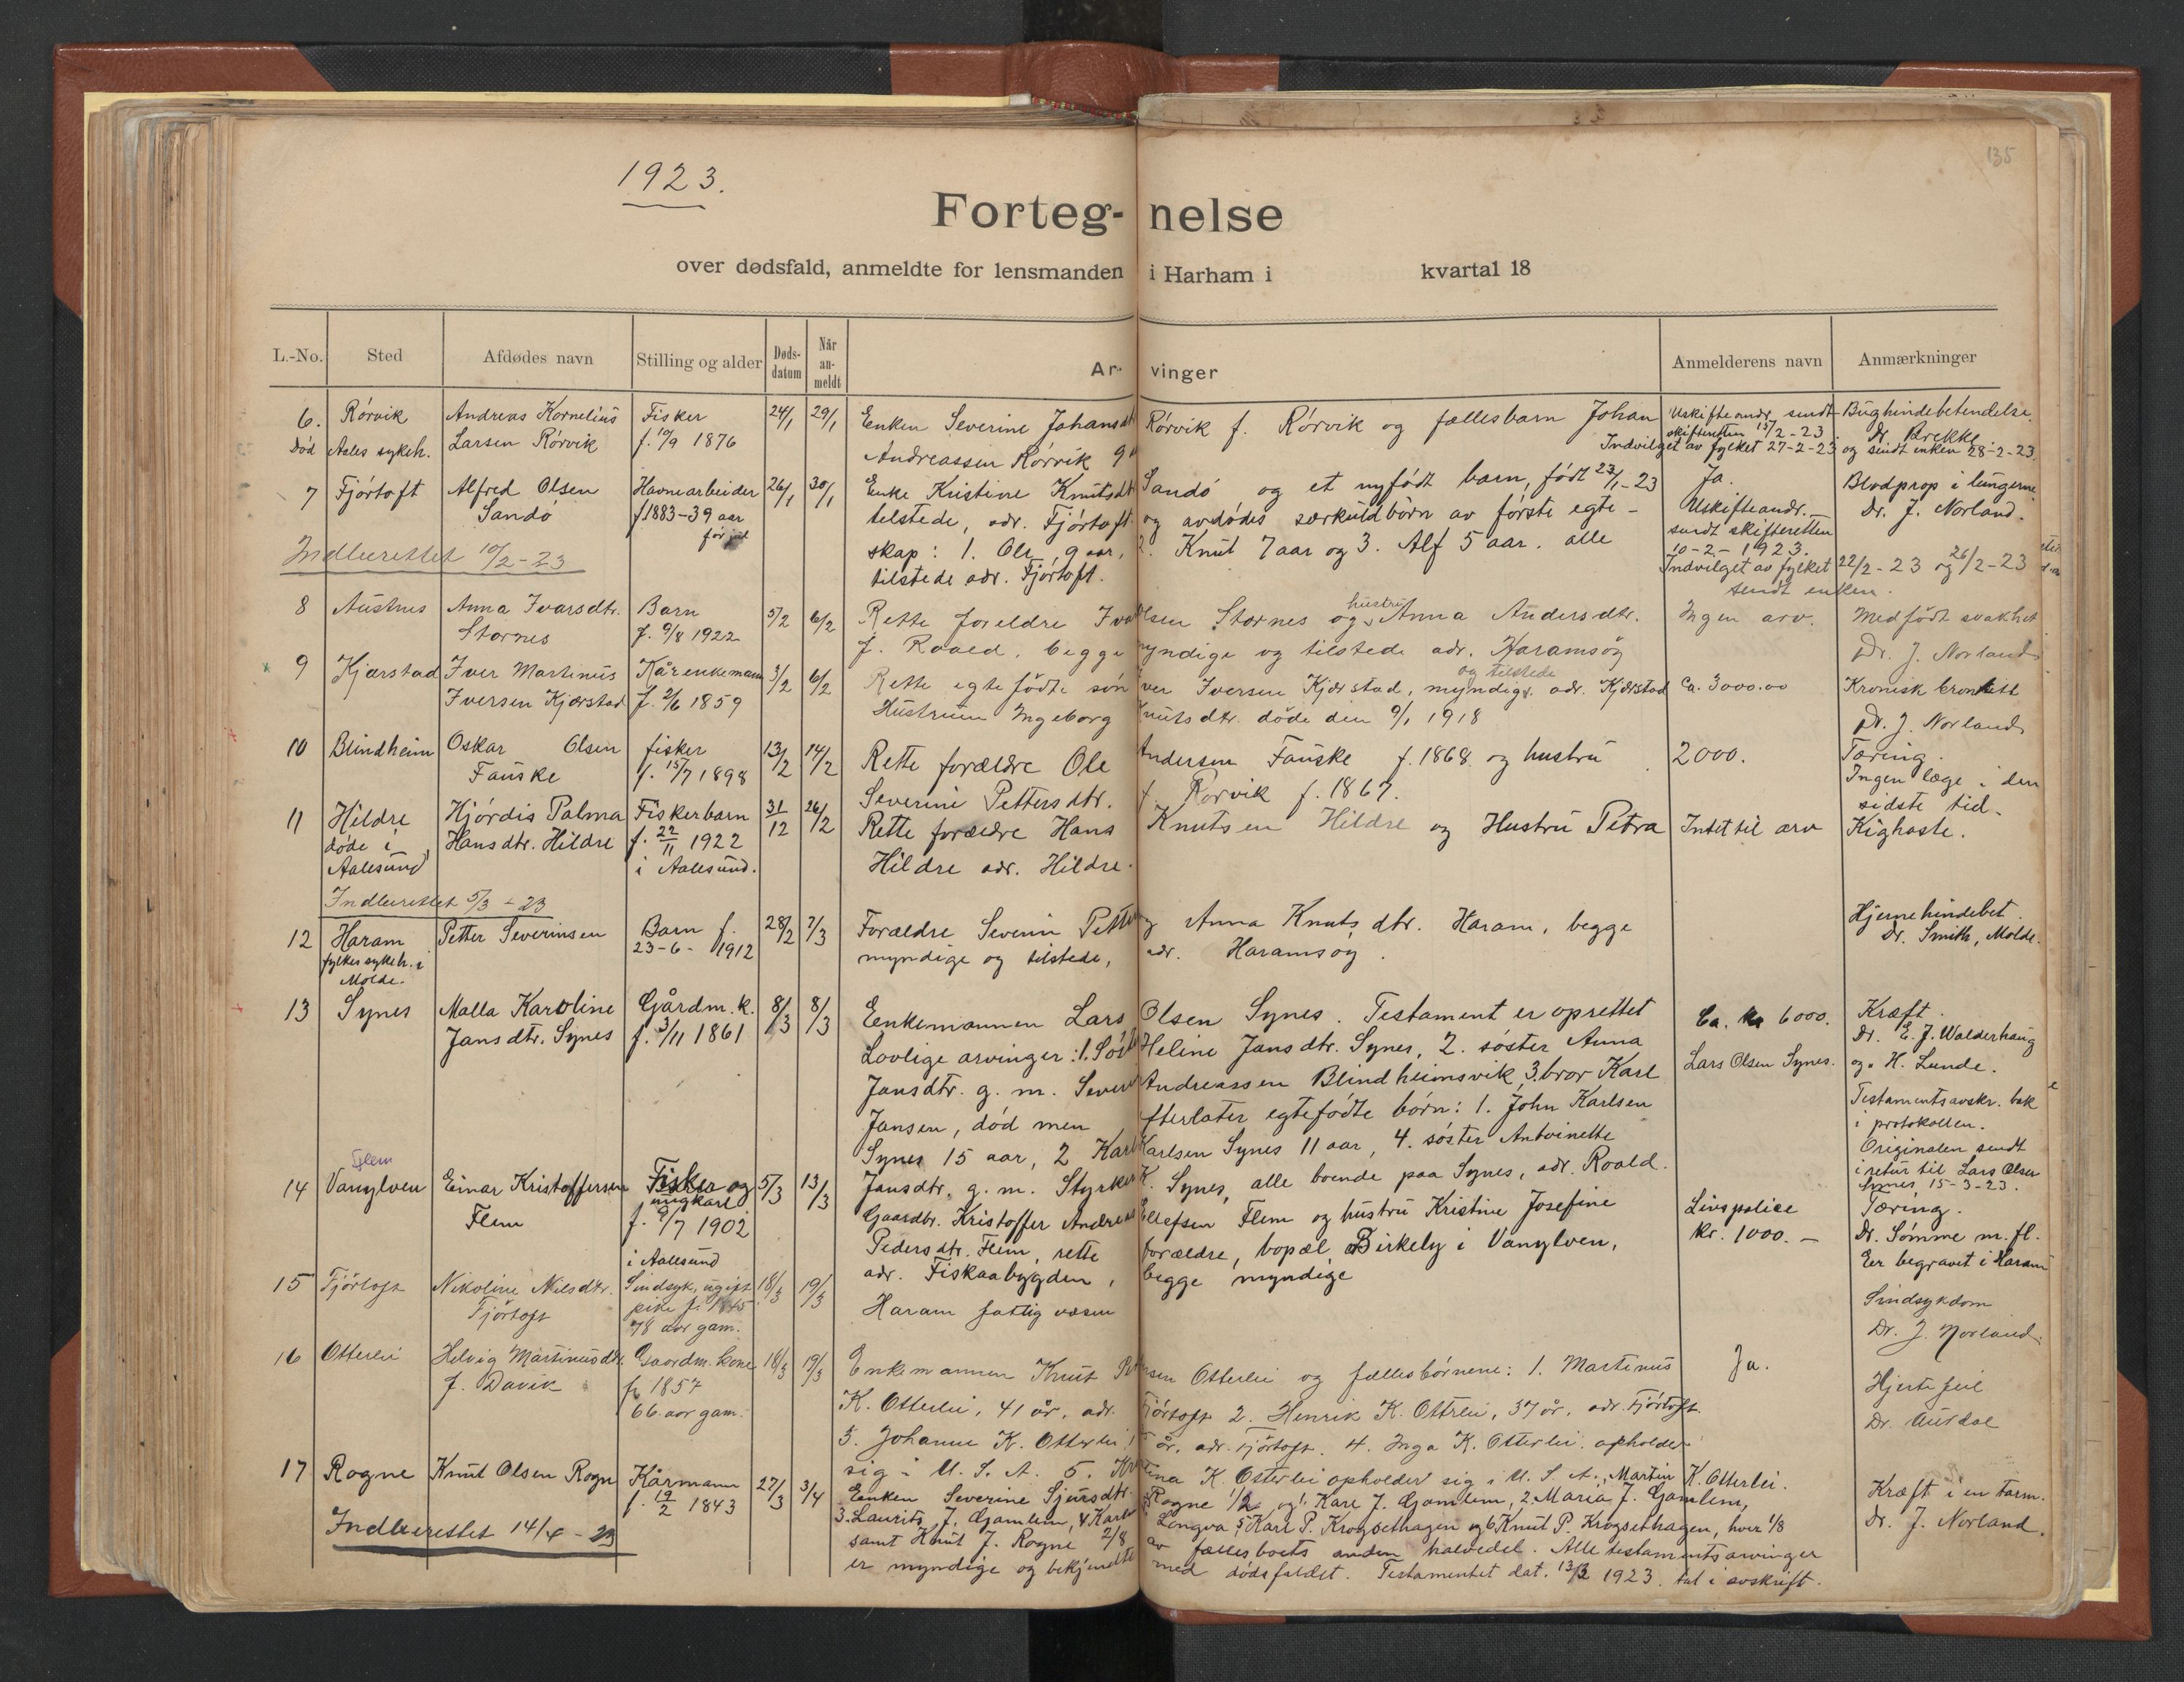 135
1923.
Forteg-nelse
over dødsfald, anmeldte for lensmanden i Harham i kvartal 18
L.-No. Sted Afdødes navn Stilling og alder Døds-datum Når an-meldt Ar-vinger Anmelderens navn Anmærkninger
6. Rörvik Andreas Kornelius Fisker 24/1 29/1 Enken Severine Johansdt Rörvik f. Rörvik og fællesbarn Johan Uskifteandr. sendt Bughindebetendelse.
Död Aales sykeh. Larsen Rörvik f. 10/9 1876 Andreassen Rörvik 9 skifteretten 15/2-23 Dr. Brekke.
Indvilget av fylket 27-2-23 og sendt enken 28-2-23.
7 Fjörtoft Alfred Olsen Havnearbeider 26/1 30/1 Enke Kristine Knutsdt Sandö og et nyfödt barn, födt 23/1-23 Ja. Blodprop i lungerne
Sandö f 1883-39 aar tilstede, adr. Fjörtoft og avdödes særkuldbörn av förste egte- Uskifteandr. Dr. J. Norland.
sendt skifteretten
Indberettet 10/2-23 skap: 1. Ole, 9 aar, 2. Knut 7 aar og 3. Alf 5 aar. alle 10-2-1923.
tilstede adr. Fjörtoft. Indvilget av fylket 22/2-23 og 26/2-23
sendt enken.
8 Austnes Anna Ivarsdtr. Barn 5/2 6/2 Rette foreldre Iva Olsen Stornes og hustru Anna Andersdtr. Ingen arv. Medfödt svakhet
Stornes f. 9/8 1922 f. Roald, begge myndige og tilstede adr. Haramsöy Dr. J. Norland
9 Kjærstad Iver Martinus Kårenkemann 3/2 6/2 Rette egtefödte sön Iver Iversen Kjærstad, myndig og tilstede adr. Kjærstad Ca. 3000.00 Kronisk bronkitt
Iversen Kjærstad f. 2/6 1859 Hustruen Ingeborg Knutsdtr. döde den 9/1 1918 Dr. J. Norland
10 Blindheim Oskar Olsen fisker 13/2 14/2 Rette forældre Ole Andersen Fauske f. 1868 og hustru 2000. Tæring.
Fauske f. 15/7 1898 Severine Pettersdtr. f Rorvik f. 1867. Ingen læge i den
sidste tid.
11 Hildre Hjördis Palma Fiskerbarn 31/12 26/2 Rette forældre Hans Knutsen Hildre og Hustru Petra Intet til arv Kighoste.
döde i Hansdtr. Hildre f. 22/11 1922 Hildre adr. Hildre.
Aalesund i Aalesund.
Indberettet 5/3-23
12 Haram Petter Severinsen Barn f. 28/2 7/3 Forældre Severin Petter og Anna Knutsdtr. Haram, begge Hjernehindebet.
fylkessykeh. i 23-6-1912 myndige og tilstede, adr. Haramsöy. Dr. Smith, Molde.
Molde.
13 Synes Malla Karoline Gårdm. k. 8/3 8/3 Enkemannen Lars Olsen Synes. Testament er oprettet Ca. kr 6000. Kræft.
Jansdtr. Synes f. 3/11 1861 Lovlige arvinger: 1. Sös Heline Jansdtr. Synes, 2. söster Anna Dr. E. J. Walderhaug
Jansdtr. g. m. Sever Andreassen Blindheimsvik, 3. bror Karl Lars Olsen Synes. og H. Lunde.
Jansen, död men efterlater egtefödte börn: 1. John Karlsen Testamentsavskr. bak
i protokollen.
Synes 15 aar, 2 Karl Karlsen Synes 11 aar, 4. söster Antoinette Originalen sendt
Jansdtr. g. m. Styrker K. Synes, alle boende paa Synes, adr. Roald. i retur til Lars Olsen
Synes 15-3-23.
Flem
14 Vanylven Einar Kristoffersen Fisker og 5/3 13/3 Gaardbr. Kristoffer Andreas Ellefsen Flem og hustru Kristine Josefine Livspolice Tæring.
Flem ungkarl f. 9/7 1902 Pedersdtr. Flem, rette forældre, bopæl Birkely i Vanylven, kr. 1000.- Dr. Sömme m. fl.
i Aalesund adr. Fiskaabygden, begge myndige Er begravet i Haram
15 Fjörtoft Nikoline Nilsdtr. Sindsyk, ugift 18/3 19/3 Haram fattigvæsen Sindsykdom
Fjörtoft pike f. 1845 Dr. J. Norland.
78 aar gam.
16 Otterlei Helvig Martinusdtr. Gaardm. kone 18/3 19/3 Enkemannen Knut Olsen Otterlei og fællesbörnene: 1. Martinus Ja. Hjertefeil
f. Davik f. 1857 K. Otterlei, 41 år, adr. Fjörtoft 2. Henrik K. Otterlei, 37 år, adr. Fjörtoft. Dr. Aursdal
66 aar gam. 3. Johanne K. Otterlei, år, adr. Fjörtoft. 4. Inga K. Otterlei opholder
sig i U. S. A. 5. K. Otterlei opholder sig i U. S. A., Martin K. Otterlei.
17 Rogne Knut Olsen Rogn Kårmann 27/3 3/4 Enken Severine Sjursdtr. Rogne 1/2 og 1. Karl J. Gamlem, 2. Maria J. Gamlem, Kræft i en tarm.
f. 19/2 1843 3. Laurits J. Gamlem, 4 Karl Longva, 5 Karl P. Krogsethagen og 6 Knut P. Krogsethagen, hver 1/8 Dr. J. Norland.
Indberettet 14/4-23 samt Knut J. Rogne 2/8 av fællesboets anden halvedel. Alle testamentsarvinger
er myndige og bekjendte med dödsfaldet. Testamentet dat. 13/3 1923. tat i avskrift.